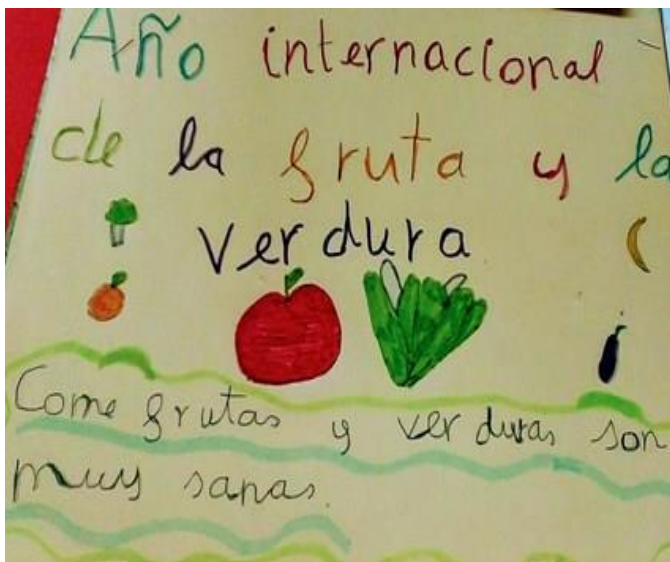 Año internacional
de la fruta y la
verdura
Come frutas y verduras son
muy sanas.